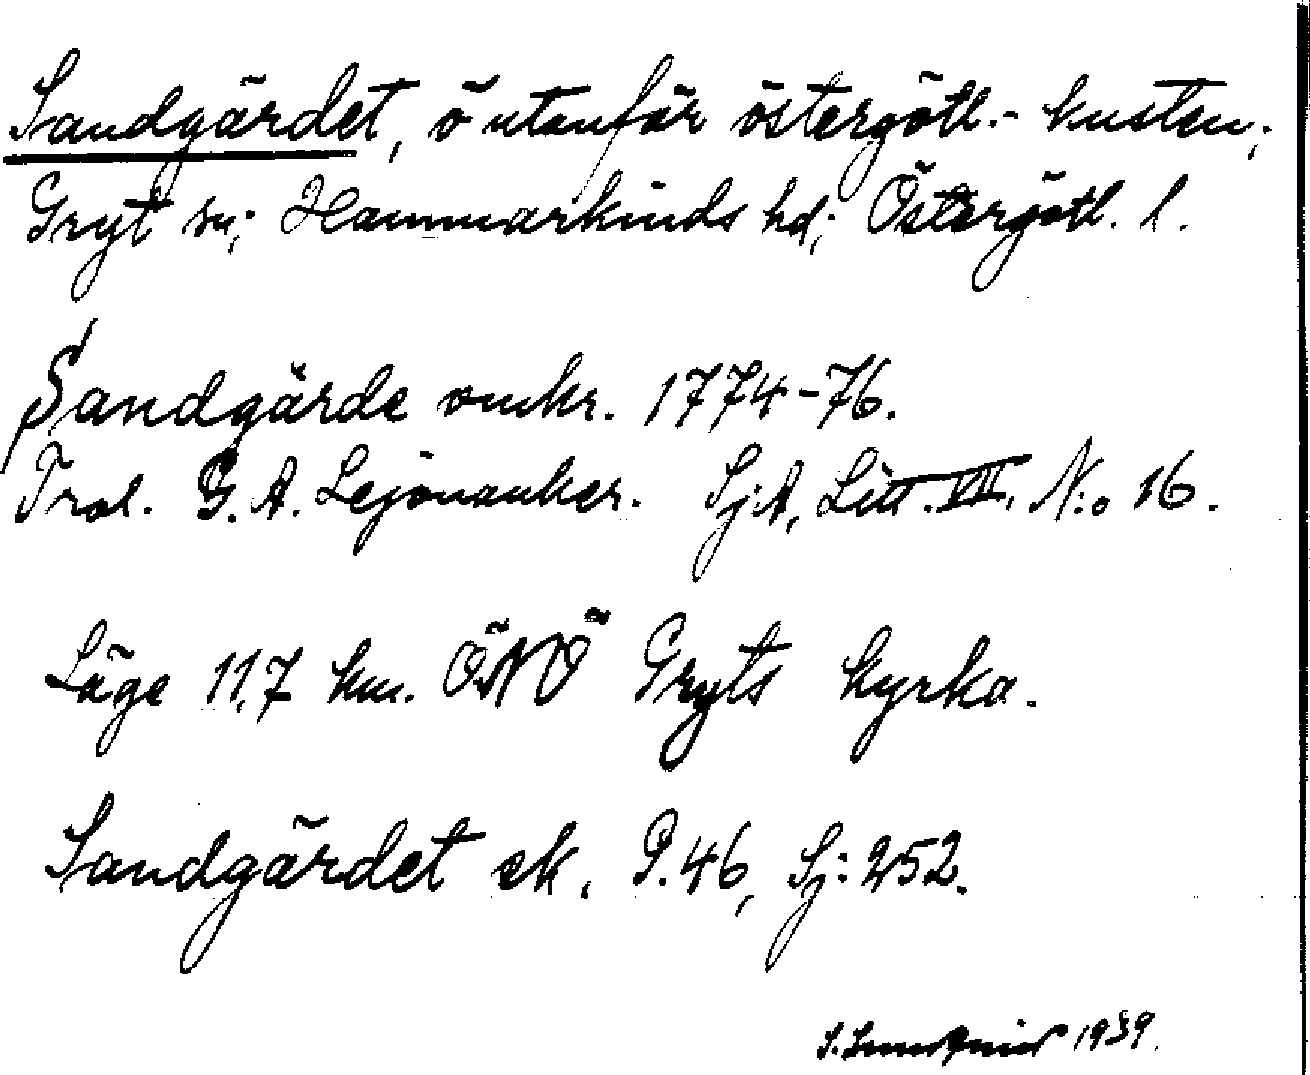 Sandgärdet, ö utanför östergötl.-kusten;
Gryt sn; Hammarkinds hd; Östergötl. l.
Sandgärde omkr. 1774-76.
Prol. G. A. Lejonanker. Sj:A, Litt. VII, N:o 16.
Läge 11,7 km. ÖNÖ Gryts kyrka.
Sandgärdet ek. P. 46, Sj: 252.
S. 1939.